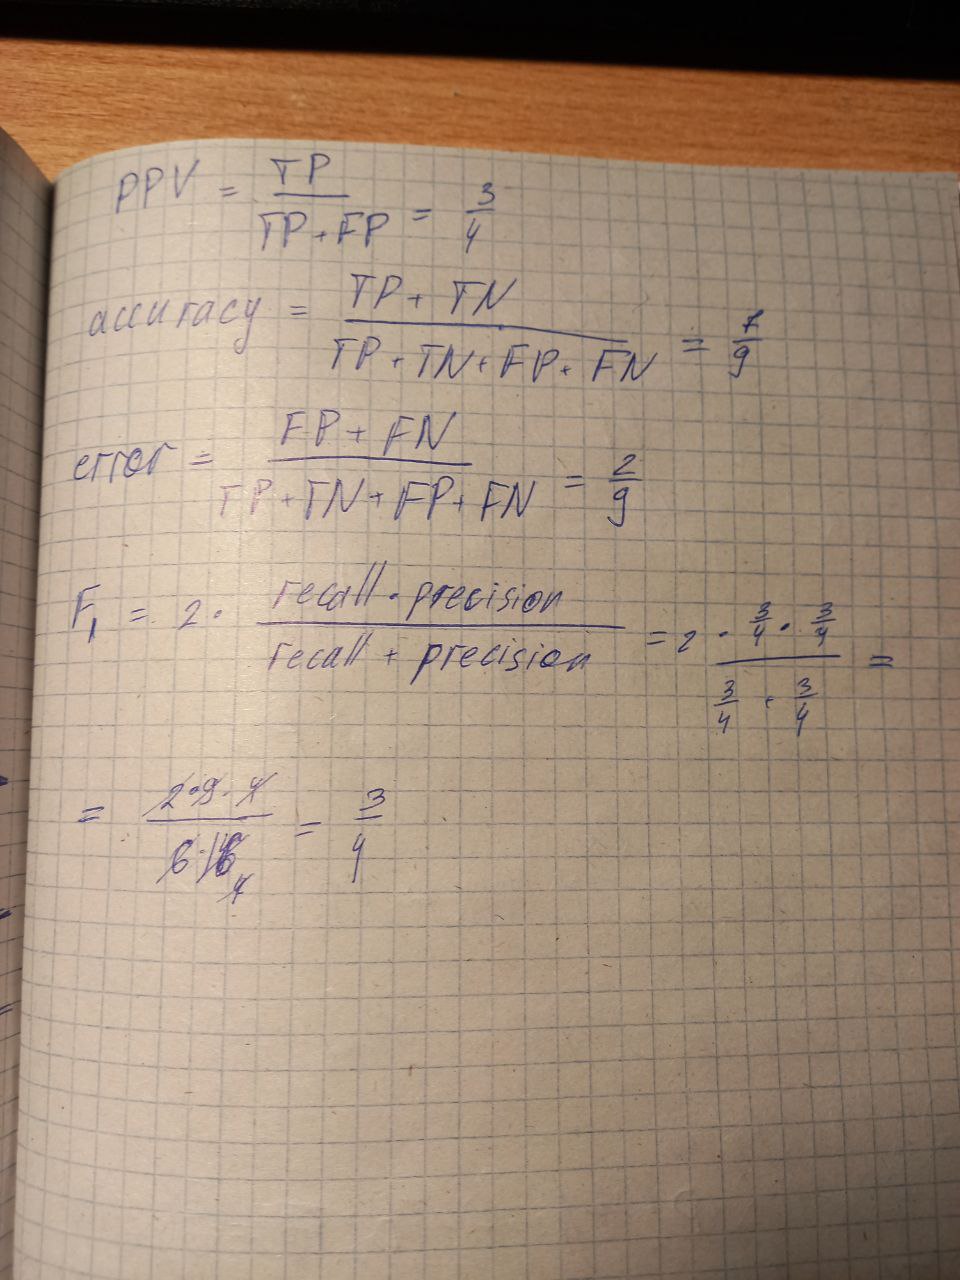 PPV = TP / TP + FP = 3/4
accuracy = TP + TN / TP + TN + FP + FN = 7/9
error = FP + FN / TP + TN + FP + FN = 2/9
F₁ = 2 · recall · precision / recall + precision = 2 · 3/4 · 3/4 / 3/4 · 3/4 =
= 2 · 9 · 4 / 6 · 16 = 3/4